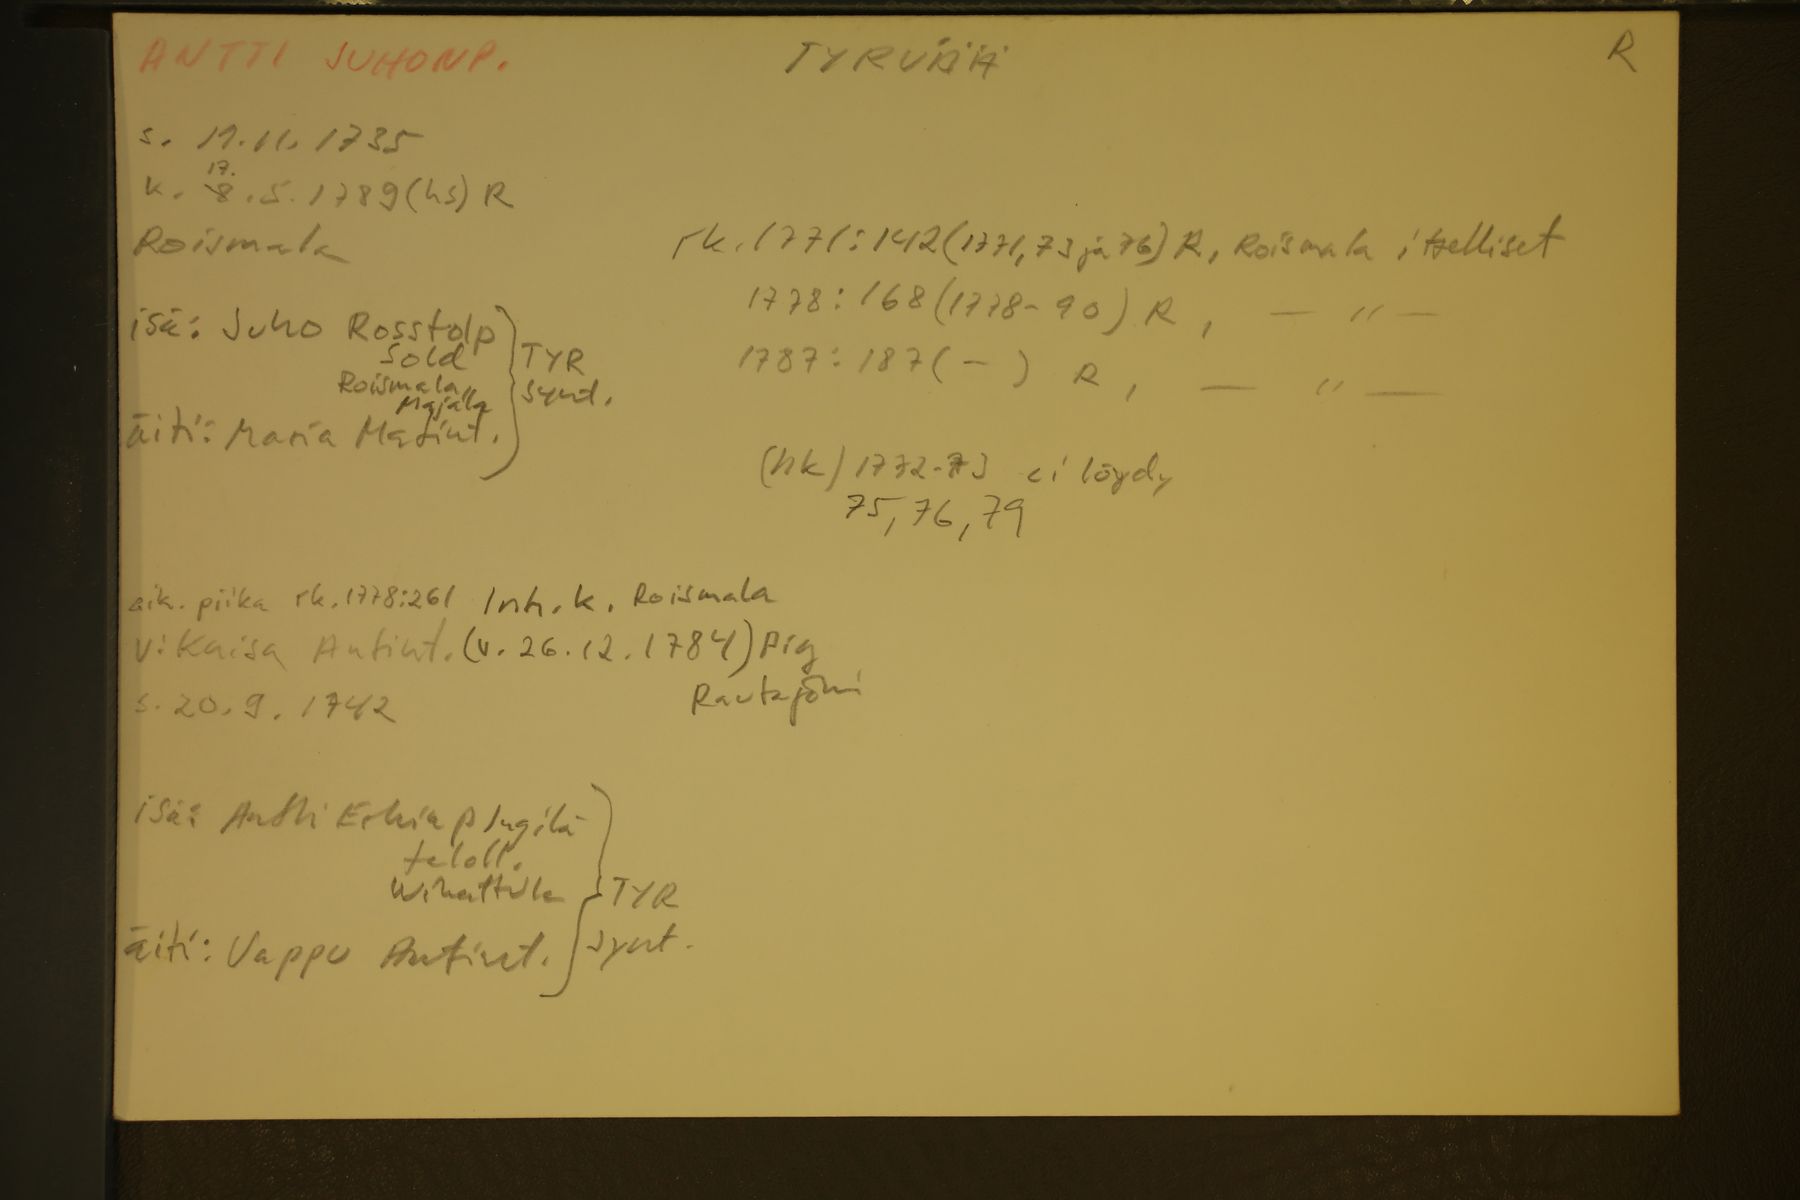 ANTTI JUHONP. TYRVÄÄ R
s. 19.11.1735
17.
k. 8.5.1789 (hs) R
Roismala
rk. 1771:142 (1771, 73 ja 76) R, Roismala itselliset
1778:168 (1778-90) R, — " —
1787:187 ( - ) R, — " —
isä: Juho Rosstolp
Sold
Roismala
Majala
äiti: Maria Matint.
TYR
synt.
(hk) 1772-73 ei löydy
75, 76, 79
aik. piika rk. 1778:261 Inh. k. Roismala
v: Kaisa Antint. (v. 26.12.1784) pig
s. 20.9.1742
isä: Antti Erkinp Jugilä
taloll.
äiti: Vappu Antint.
TYR
synt.